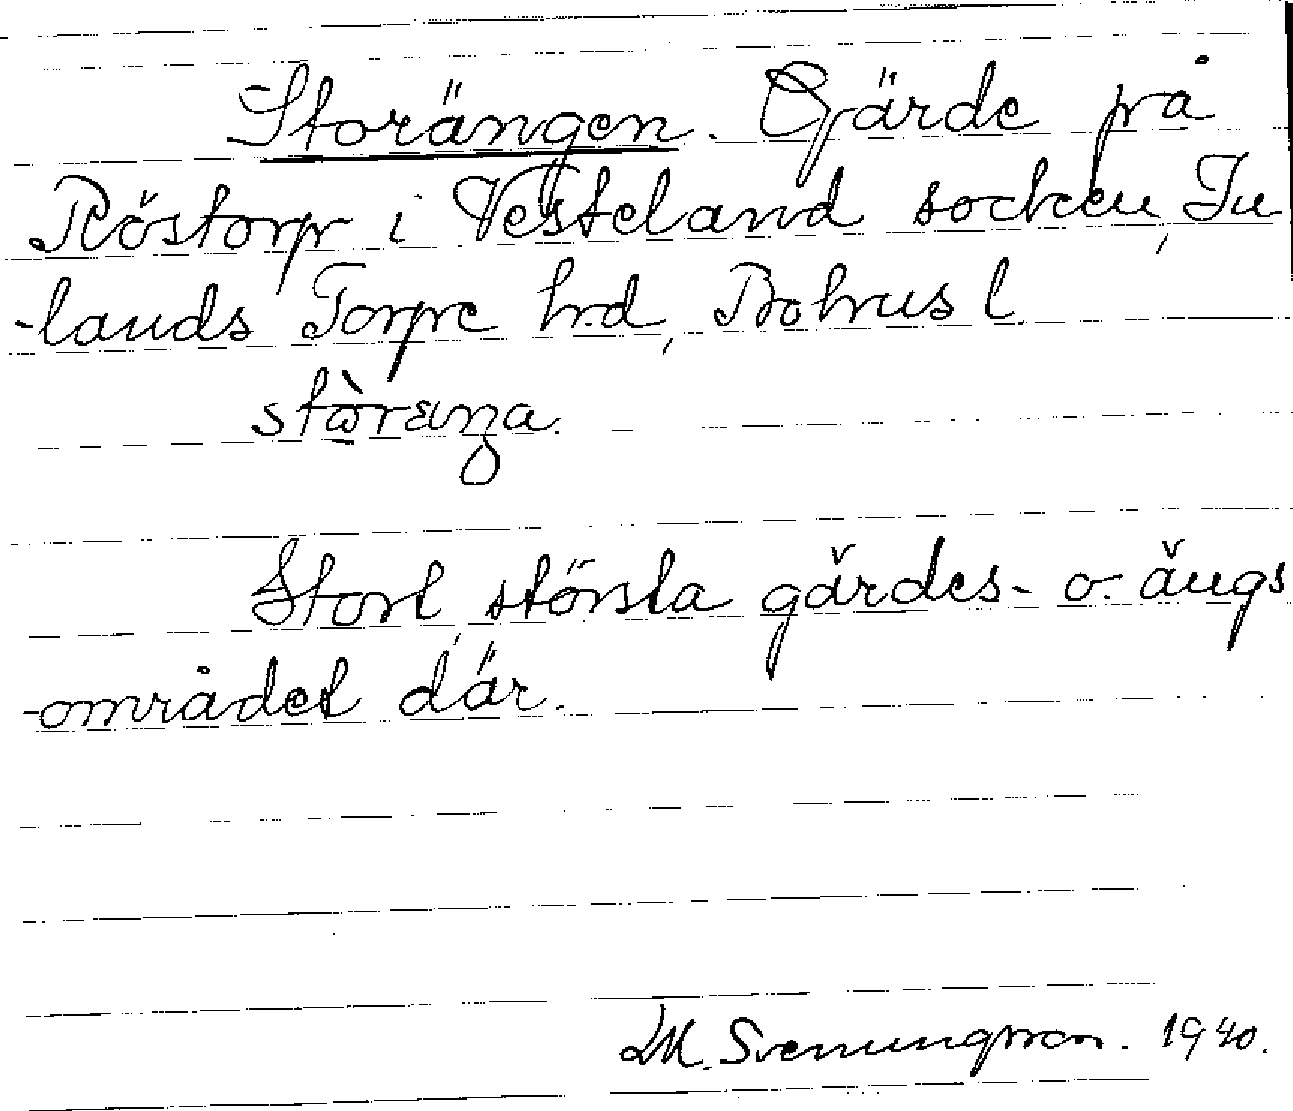 Storängen. Gärde på
Röstorp i Vesteland socken, In
-lands Torpe hrd, Bohus l.
Stort, största gärdes- o. ängs
-området där.
M. Svenungsson. 1940.